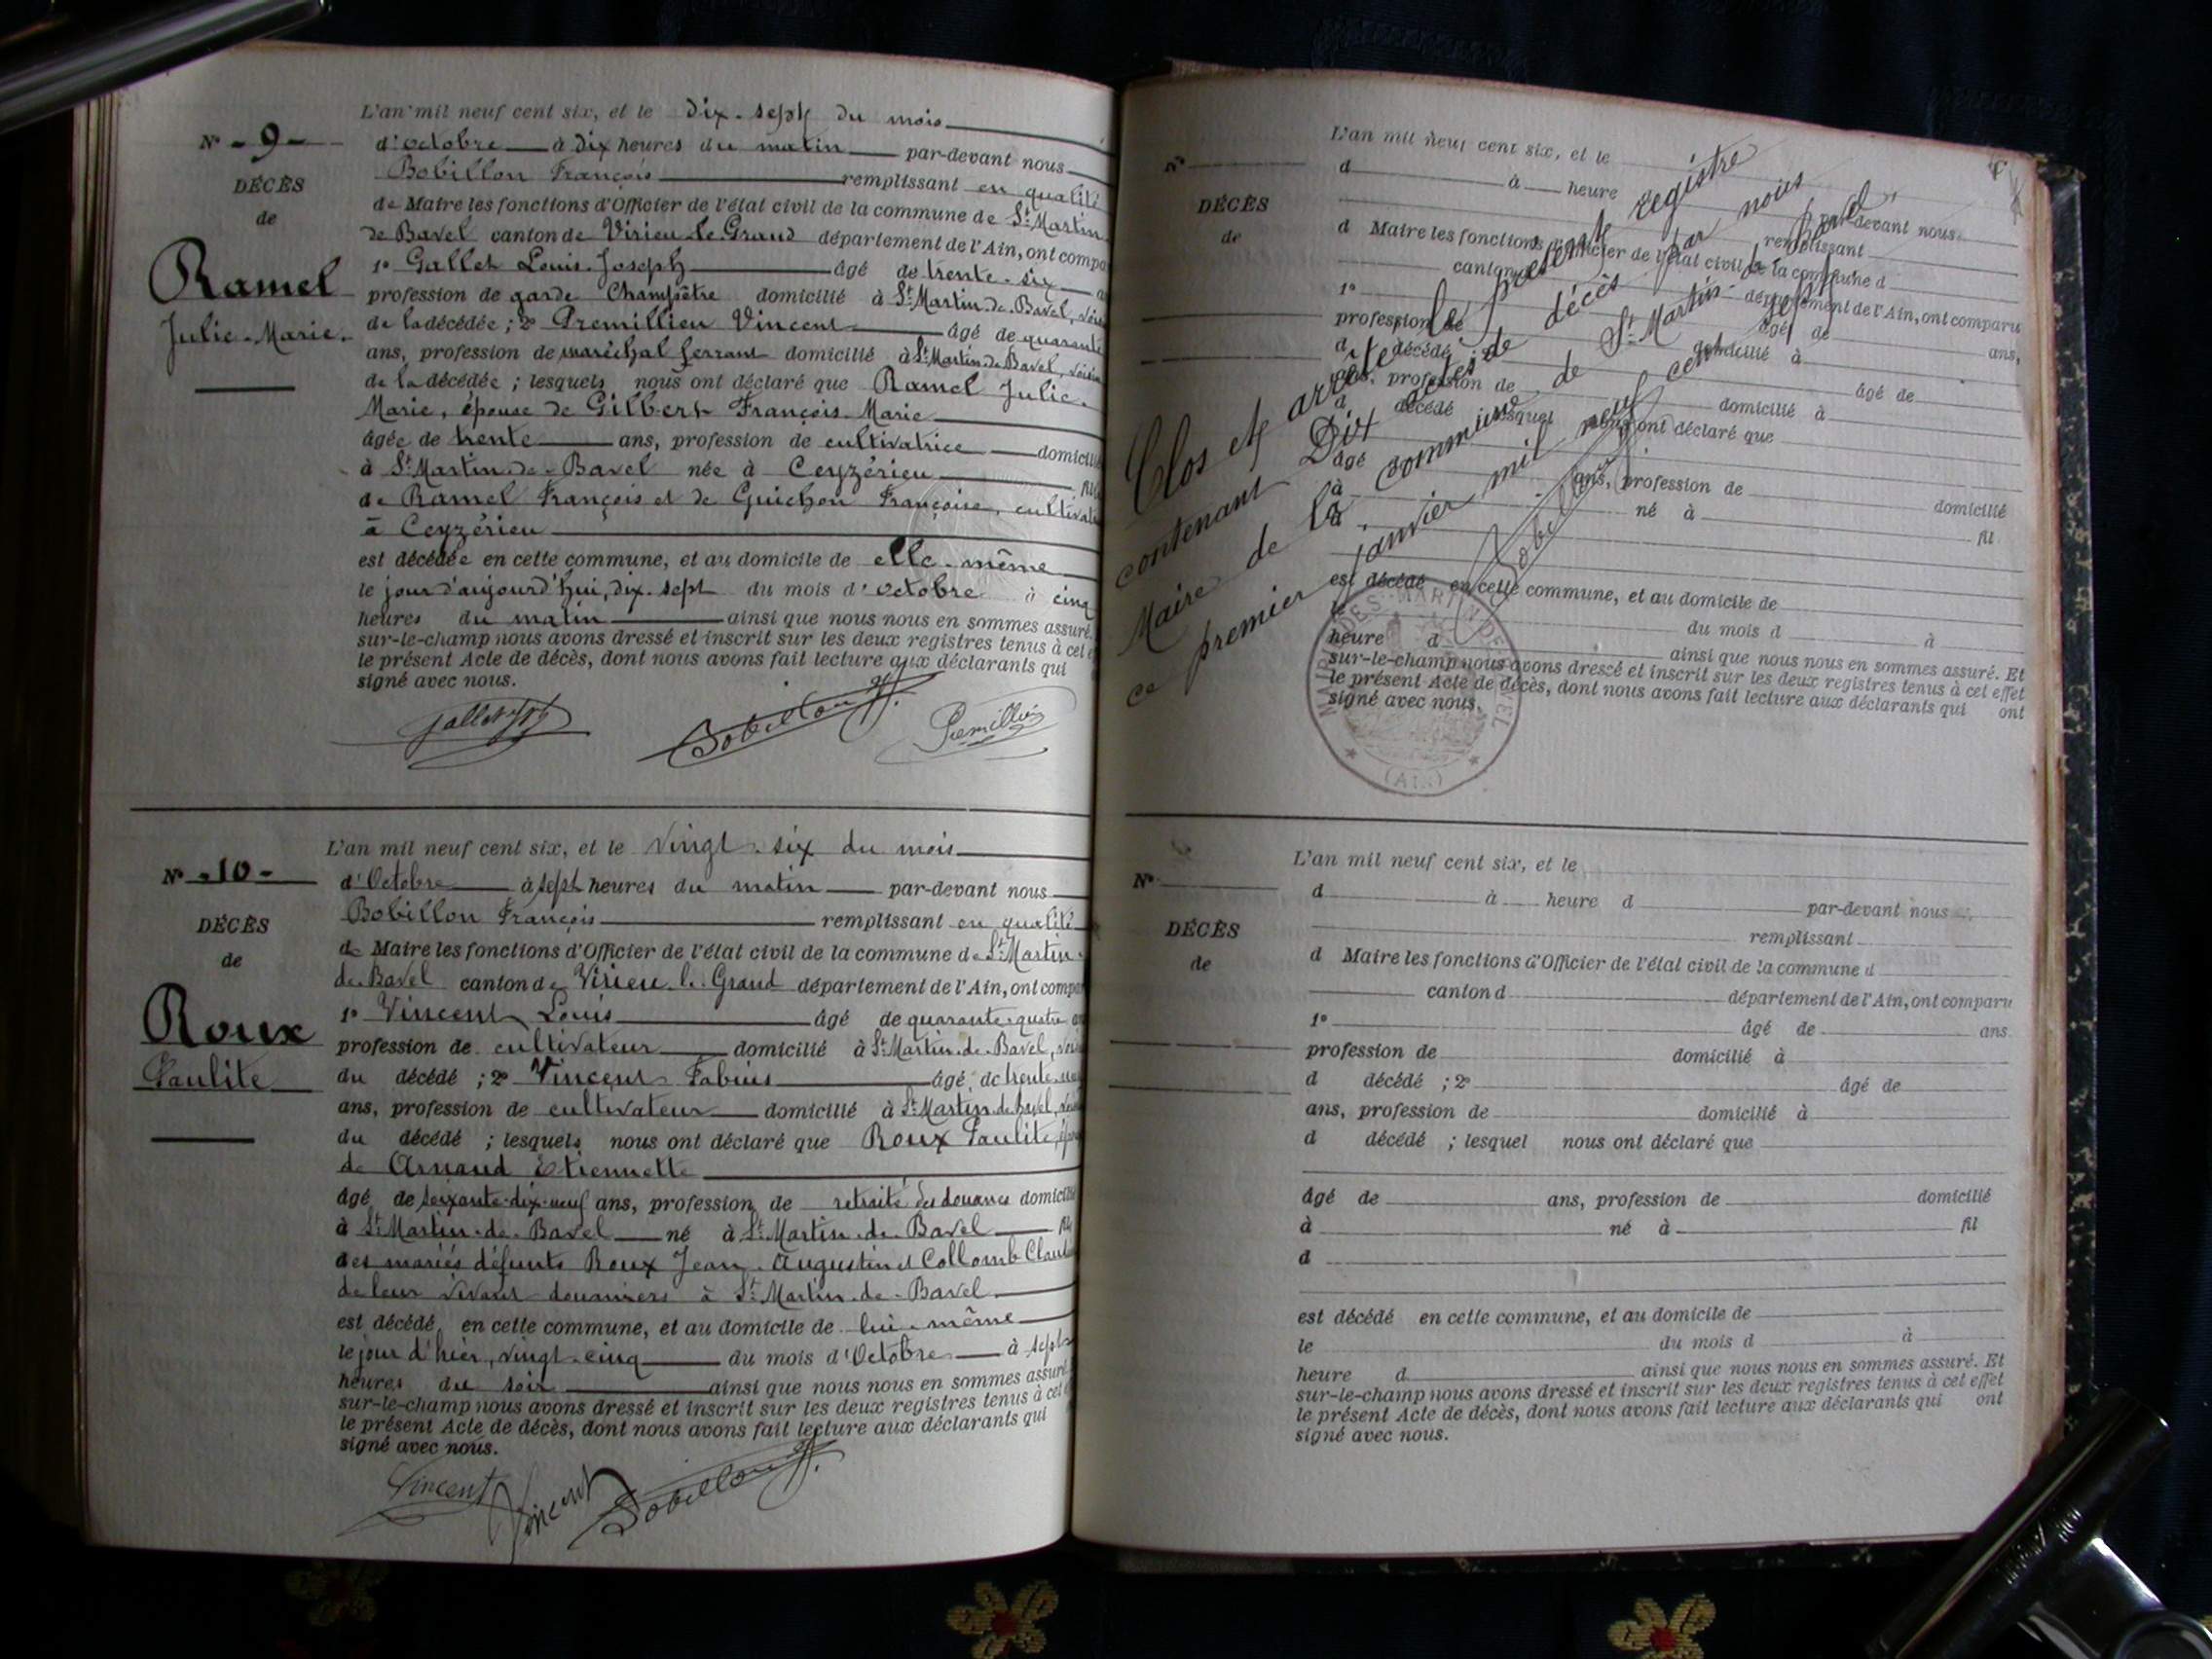 L'an mil neuf cent six, et le dix-sept du mois
N° - 9 -
d'octobre à dix heures du matin par-devant nous
Bobillon François remplissant en qualité
DÉCÈS
de Maire les fonctions d'Officier de l'état civil de la commune de St Martin
de
de Bavel canton de Virieu-le-Grand département de l'Ain, ont compa
1° Gallet Louis-Joseph âgé de trente-six
Ramel
profession de garde Champêtre domicilié à St Martin-de-Bavel,
Julie-Marie
de la décédée ; 2° Premillieu Vincent âgé de quarante
ans, profession de maréchal ferrant domicilié à St Martin-de-Bavel,
de la décédée ; lesquels nous ont déclaré que Ramel Julie
Marie, épouse de Gilbert François-Marie
âgée de trente ans, profession de cultivatrice domicilié
à St Martin-de-Bavel née à Ceyzérieu
de Ramel François et de Guichon Françoise,
à Ceyzérieu
est décédée en cette commune, et au domicile de elle-même
le jour d'aujourd'hui, dix-sept du mois d'octobre à cinq
heures du matin ainsi que nous nous en sommes assuré.
sur-le-champ nous avons dressé et inscrit sur les deux registres tenus à cet e
le présent Acte de décès, dont nous avons fait lecture aux déclarants qui
signé avec nous.
Bobillon
Premillieu
L'an mil neuf cent six, et le vingt-six du mois
N° - 10 -
d'Octobre à sept heures du matin par-devant nous
DÉCÈS
Bobillon François remplissant en qualité
de
de Maire les fonctions d'Officier de l'état civil de la commune de St Martin
de Bavel canton de Virieu-le-Grand département de l'Ain, ont compa
Roux
1° Vincent Louis âgé de quarante-quatre
profession de cultivateur domicilié à St Martin-de-Bavel,
Paulite
du décédé ; 2° Vincent Fabius âgé de trente
ans, profession de cultivateur domicilié à St Martin-de-Bavel,
du décédé ; lesquels nous ont déclaré que Roux Paulite,
de Arnaud Etiennette
âgé de soixante-dix-neuf ans, profession de retraité des douanes domicilié
à St Martin-de-Bavel né à St Martin-de-Bavel
des mariés défunts Roux Jean-Augustin et Collomb
de leur vivant douaniers à St Martin-de-Bavel
est décédé en cette commune, et au domicile de lui-même
le jour d'hier, vingt-cinq du mois d'Octobre à sept
heures du soir ainsi que nous nous en sommes assuré
sur-le-champ nous avons dressé et inscrit sur les deux registres tenus à cet
le présent Acte de décès, dont nous avons fait lecture aux déclarants qui
signé avec nous.
Vincent Vincent Bobillon
L'an mil neuf cent six, et le
N°
d à heure
par-devant nous
DÉCÈS
remplissant
de
d Maire les fonctions d'Officier de l'état civil de la commune d
canton département de l'Ain, ont comparu
1° âgé de ans,
profession de domicilié à
d décédé âgé de
ans, profession de domicilié à
d décédé lesquel nous ont déclaré que
âgé ans, profession de domicilié
à né à fil
d
est décédé en cette commune, et au domicile de
le du mois d à
heure d ainsi que nous nous en sommes assuré. Et
sur-le-champ nous avons dressé et inscrit sur les deux registres tenus à cet effet
le présent Acte de décès, dont nous avons fait lecture aux déclarants qui ont
signé avec nous.
Clos et arrêté le présent registre
contenant Dix actes de décès par nous
Maire de la commune de St Martin-de-Bavel
ce premier janvier mil neuf cent sept.
Bobillon
MAIRIE DE ST MARTIN DE BAVEL
(AIN)
L'an mil neuf cent six, et le
N°
d à heure d par-devant nous
DÉCÈS
remplissant
de
d Maire les fonctions d'Officier de l'état civil de la commune d
canton d département de l'Ain, ont comparu
1° âgé de ans.
profession de domicilié à
d décédé ; 2° âgé de
ans, profession de domicilié à
d décédé ; lesquel nous ont déclaré que
âgé de ans, profession de domicilié
à né à fil
d
est décédé en cette commune, et au domicile de
le du mois d à
heure d ainsi que nous nous en sommes assuré. Et
sur-le-champ nous avons dressé et inscrit sur les deux registres tenus à cet effet
le présent Acte de décès, dont nous avons fait lecture aux déclarants qui ont
signé avec nous.